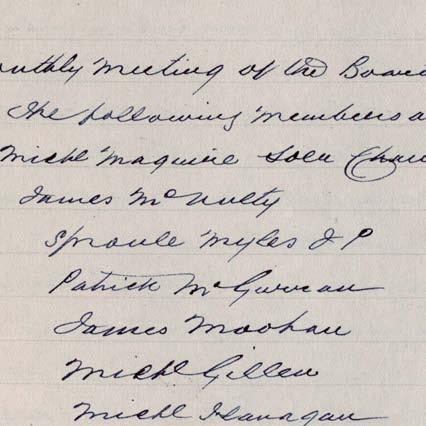 onthly Meeting of the Board
the following members a
Michl Maguire Solr Chair
James McNulty
Sproule Myles J P
Patrick McGurran
James Moohan
Michl Gillen
Michl Flanagan